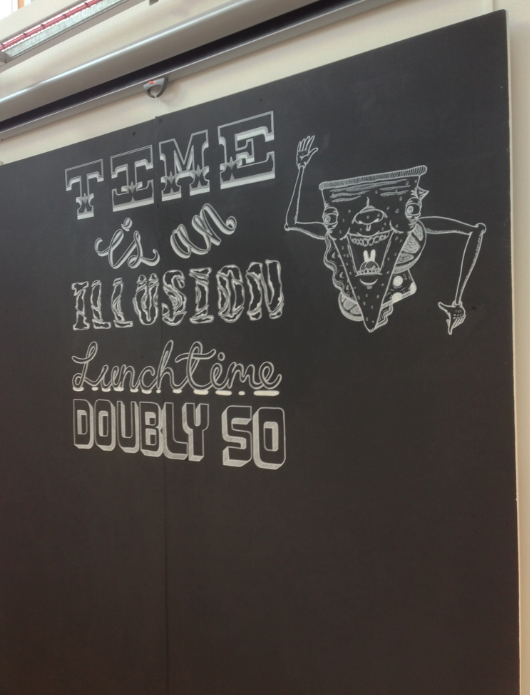 TIME
is an
ILLUSION
Lunchtime
DOUBLY SO